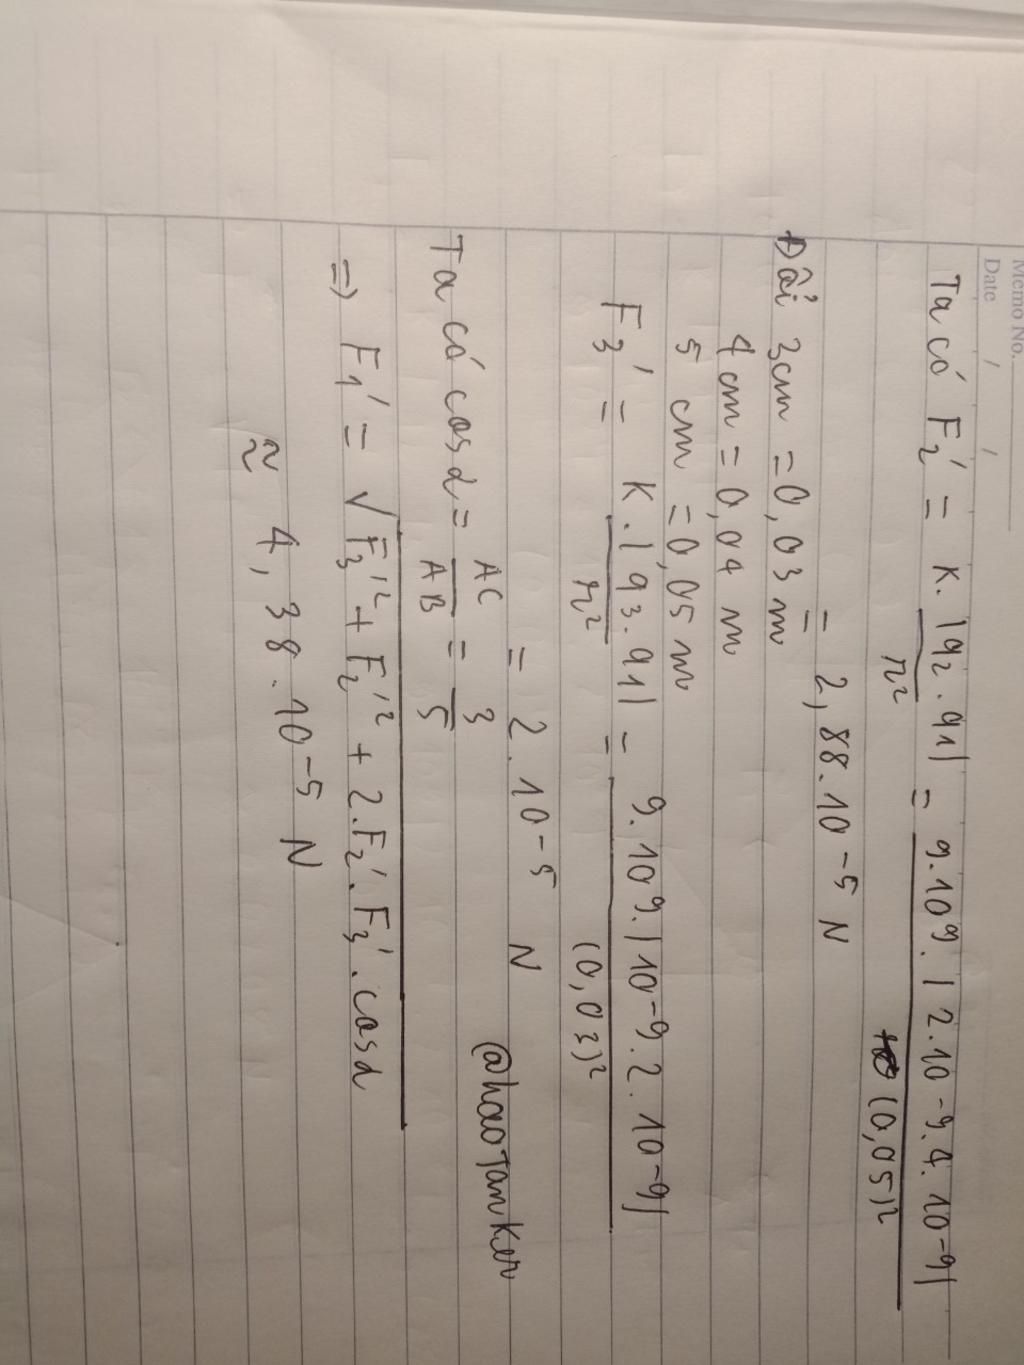 Memo No.
Date / /
Ta có F₂' = K.|q₂.q₁| / r² = 9.10⁹.|2.10⁻⁹.4.10⁻⁹| / (0,05)²
= 2,88.10⁻⁵ N
Đổi 3cm = 0,03 m
4 cm = 0,04 m
5 cm = 0,05 m
F₃' = K.|q₃.q₁| / r² = 9.10⁹.|10⁻⁹.2.10⁻⁹| / (0,03)²
= 2.10⁻⁵ N
Ta có cosα = AC / AB = 3 / 5
@haotanker
=> F₁' = √F₃'² + F₂'² + 2.F₂'.F₃'.cosα
≈ 4,38.10⁻⁵ N